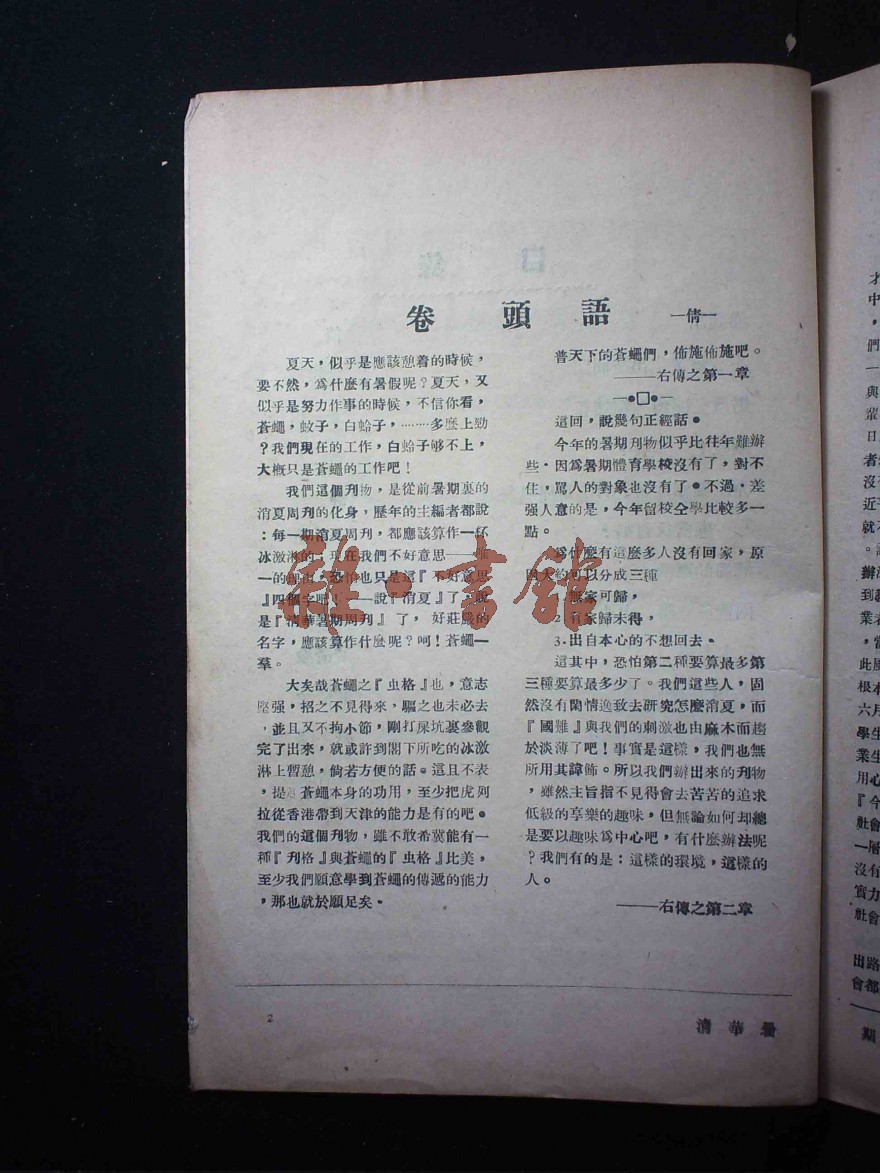 卷頭語 —倩—
夏天，似乎是應該憩着的時候，
要不然，爲什麽有暑假呢？夏天，又
似乎是努力作事的時候，不信你看，
蒼蠅，蚊子，白蛉子，………多麽上勁
？我們現在的工作，白蛉子够不上，
大槪只是蒼蠅的工作吧！
我們這個刋物，是從前暑期裏的
消夏周刋的化身，歷年的主編者都說
：每一期消夏周刋，都應該算作一杯
冰激淋的；現在我們不好意思——唯
一的理由，恐怕也只是這『不好意思
』四個字吧！——說『消夏』了，說
是『清華暑期周刋』了，好莊嚴的
名字，應該算作什麽呢？呵！蒼蠅一
羣。
大矣哉蒼蠅之『虫格』也，意志
堅强，招之不見得來，驅之也未必去
，並且又不拘小節，剛打屎坑裏參觀
完了出來，就或許到閣下所吃的冰激
淋上暫憩，倘若方便的話。這且不表
，提起蒼蠅本身的功用，至少把虎列
拉從香港帶到天津的能力是有的吧。
我們的這個刋物，雖不敢希冀能有一
種『刋格』與蒼蠅的『虫格』比美，
至少我們願意學到蒼蠅的傳遞的能力
，那也就於願足矣。
普天下的蒼蠅們，佈施佈施吧。
——右傳之第一章
這回，說幾句正經話。
今年的暑期刋物似乎比往年難辦
些．因爲暑期體育學校沒有了，對不
住，駡人的對象也沒有了。不過，差
强人意的是，今年留校仝學比較多一
點。
爲什麽有這麽多人沒有回家，原
因大約可以分成三種
1．無家可歸，
2．有家歸未得，
3．出自本心的不想回去。
這其中，恐怕第二種要算最多第
三種要算最多少了。我們這些人，固
然沒有閑情逸致去研究怎麽消夏，而
『國難』與我們的刺激也由麻木而趨
於淡薄了吧！事實是這樣，我們也無
所用其諱飾。所以我們辦出來的刋物
，雖然主旨指不見得會去苦苦的追求
低級的享樂的趣味，但無論如何却總
是要以趣味爲中心吧，有什麽辦法呢
？我們有的是：這樣的環境，這樣的
人。
——右傳之第二章
2
清華暑
才
中
，
們
一
輩
日
者
沒
近
就不
辦
到
業者
，當
此風
根本
六月
學生
業生
用心
『今
社會
一層
沒有
實力
社會
出路
會都
期
雜·書館